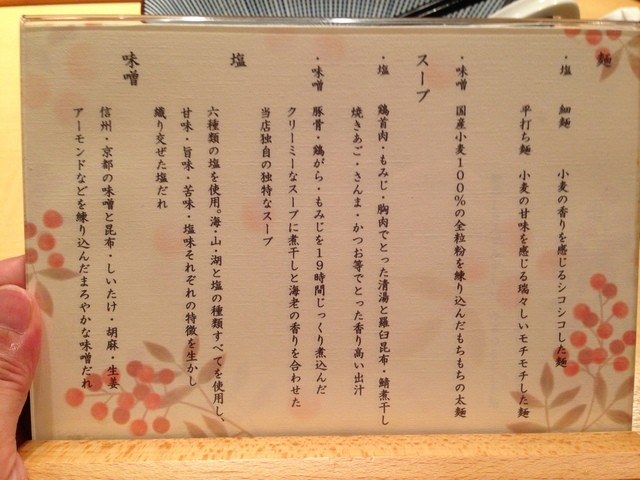 麺
・塩 細麺 小麦の香りを感じるシコシコした麺
平打ち麺 小麦の甘味を感じる瑞々しいモチモチした麺
・味噌 国産小麦100%の全粒粉を練り込んだもちもちの太麺
スープ
・塩 鶏首肉・もみじ・胸肉でとった清湯と羅臼昆布・鯖煮干し
焼きあご・さんま・かつお等でとった香り高い出汁
・味噌 豚骨・鶏がら・もみじを19時間じっくり煮込んだ
クリーミーなスープに煮干しと海老の香りを合わせた
当店独自の独特なスープ
塩 六種類の塩を使用。海・山・湖と塩の種類すべてを使用し、
甘味・旨味・苦味・塩味それぞれの特徴を生かし
織り交ぜた塩だれ
味噌 信州・京都の味噌と昆布・しいたけ・胡麻・生姜
アーモンドなどを練り込んだまろやかな味噌だれ